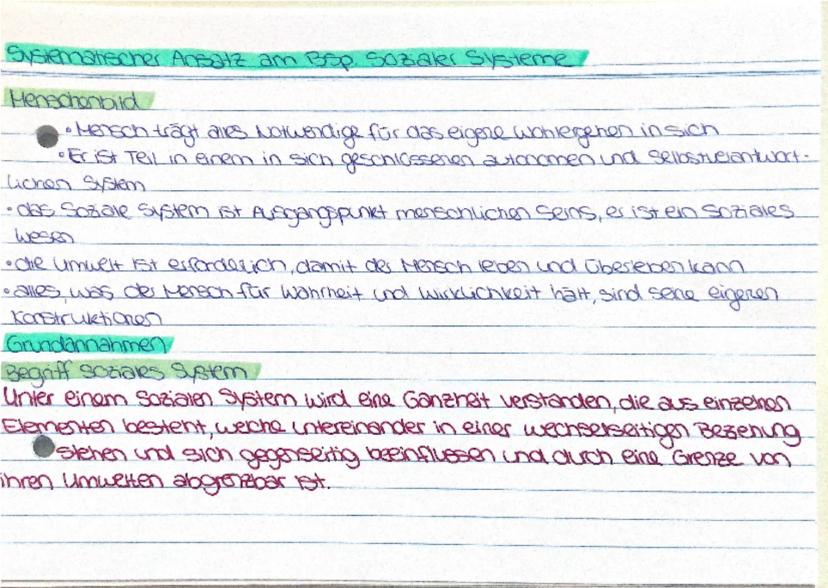 Systematischer Ansatz am Bsp. Sozialer Systeme
Menschenbild
• Mensch trägt alles Notwendige für das eigene Wohlergehen in sich
• Er ist Teil in einem in sich geschlossenen autonomen und selbstverantwort-
lichen System
• das Soziale System ist Ausgangspunkt menschlichen Seins, er ist ein soziales
Wesen
• die Umwelt ist erforderlich, damit der Mensch leben und überleben kann
• alles, was der Mensch für Wahrheit und Wirklichkeit hält, sind seine eigenen
Konstruktionen
Grundannahmen
Begriff soziales System
Unter einem Sozialen System wird eine Ganzheit verstanden, die aus einzelnen
Elementen besteht, welche untereinander in einer wechselseitigen Beziehung
stehen und sich gegenseitig beeinflussen und durch eine Grenze von
ihren Umwelten abgrenzbar ist.